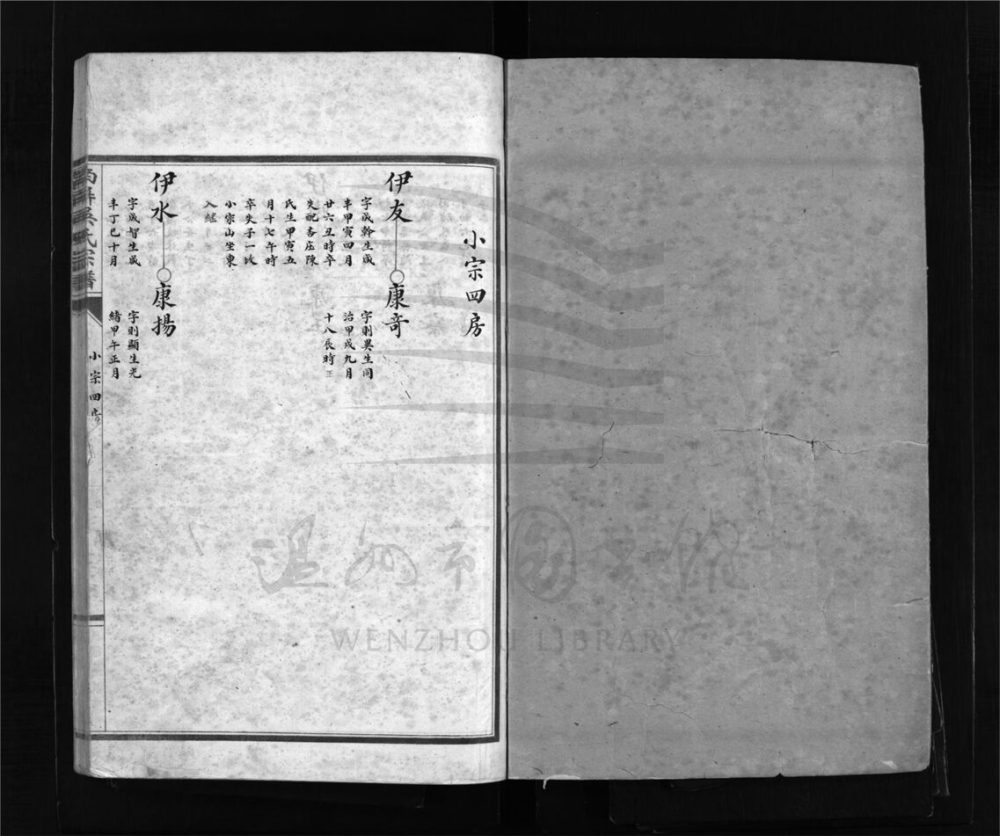 小宗四房
伊友
康竒
字成幹生咸
丰甲寅四月
廿六丑時卒
失配李庄陳
氏生甲寅五
月十七午時
卒失子一坟
小宗山坐東
入繼
字則異生同
治甲戌九月
十八辰時
伊水
康揚
字成智生咸
丰丁巳十月
字則顯生光
緒甲午正月
吳氏宗譜
小宗四房
温州市图书馆
WENZHOU LIBRARY